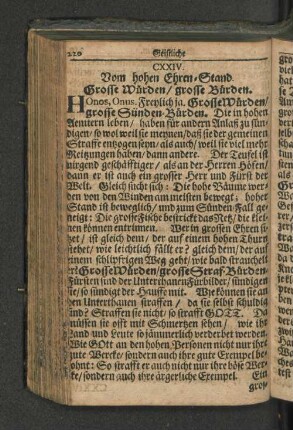 220
Geistliche
CXXIV.
Vom hohen Ehren-Stand.
Grosse Würden / grosse Bürden.
Honos, Onus. Freylich ja. Grosse Würden /
grosse Sünden-Bürden. Die in hohen
Aemtern leben / haben für andern Anlaß zu sün-
digen / so wol weil sie meynen / daß sie der gemeinen
Straffe entzogen seyn / als auch / weil sie viel mehr
Reitzungen haben / dann andere. Der Teufel ist
nirgend geschäfftiger / als an der Herren Höfen /
dann er ist auch ein grosser Herr und Fürst der
Welt. Gleich sucht sich: Die hohe Bäume wer-
den von den Winden am meisten bewegt: hoher
Stand ist beweglich / und zum Sünden-Fall ge-
neigt: Die grosse Fische bestrickt das Netz / die klei-
nen können entrinnen. Wer in grossen Ehren si-
tzet / ist gleich dem / der auf einem hohen Thurn
stehet / wie leichtlich fällt er? gleich dem / der auf
einem schlipfrigen Weg geht / wie bald strauchelt
er? Grosse Würden / grosse Straf-Bürden.
Fürsten sind der Unterthanen Fürbilder / sündigen
sie / so sündigt der Hauff mit. Wie können sie an
den Unterthanen straffen / da sie selbst schuldig
sind? Straffen sie nicht / so strafft GOTT. Da
müssen sie offt mit Schmertzen sehen / wie ihr
Land und Leute so jämmerlich verderbet werden.
Wie GOtt an den hohen Personen nicht nur ihre
gute Wercke / sondern auch ihre gute Exempel be-
lohnt: So strafft er auch nicht nur ihre böse Wer-
cke / sondern auch ihre ärgerliche Exempel. Ein
gros-